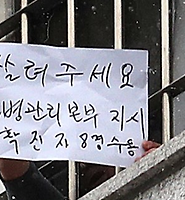 살려주세요
병관리본부 지시
확진자 8명 수용